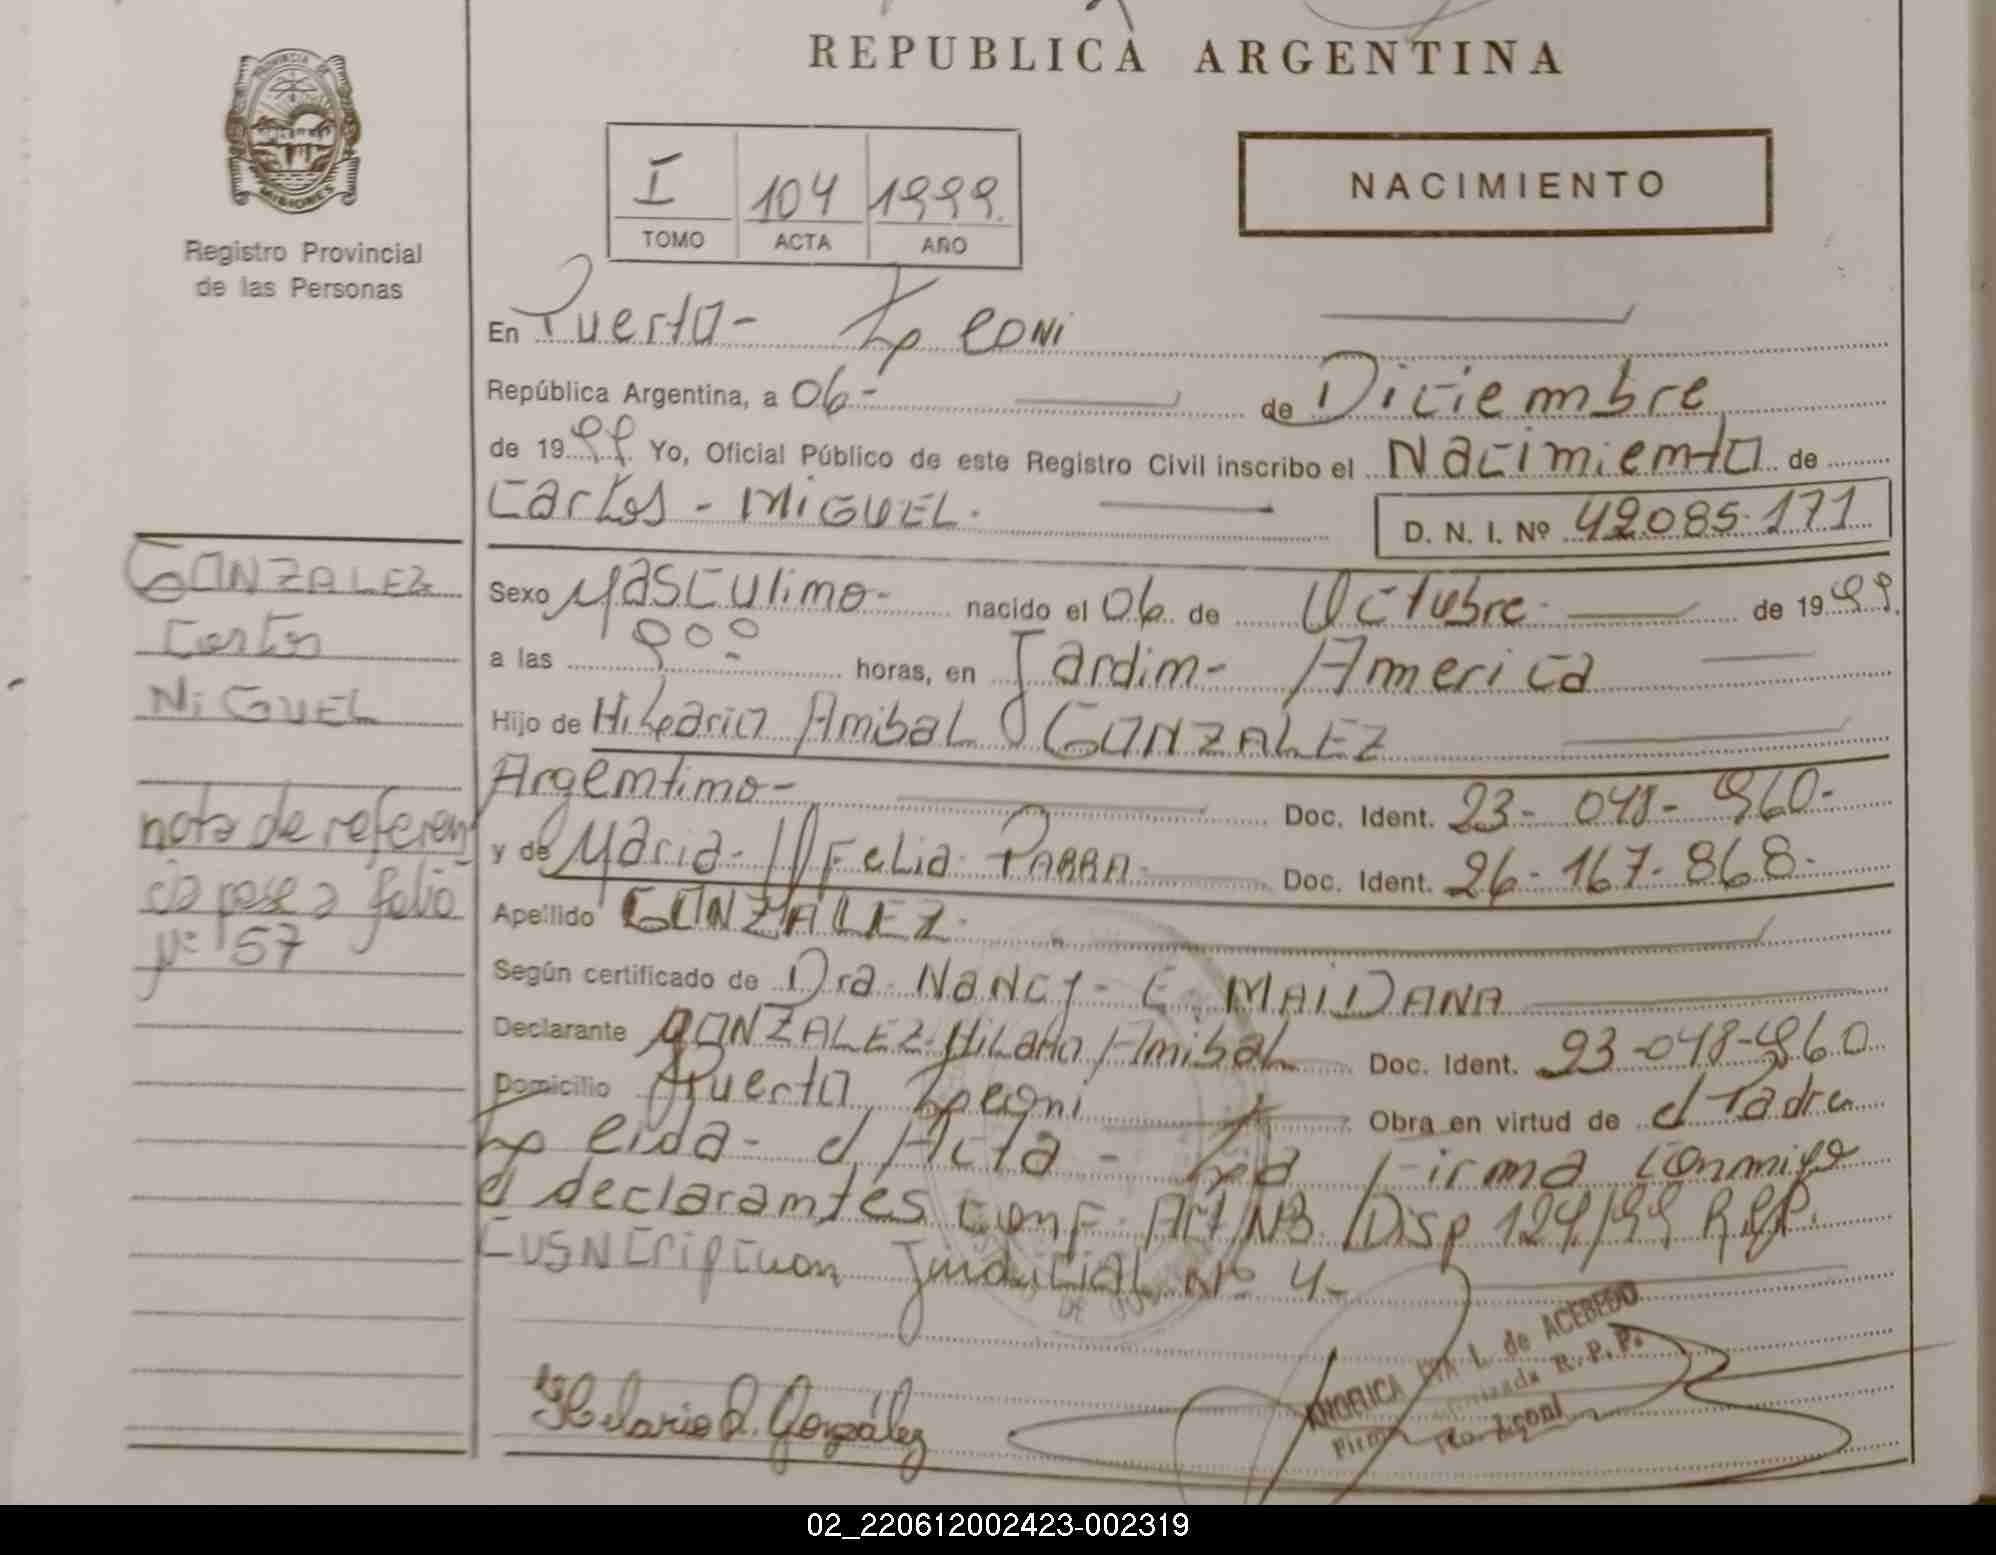 REPUBLICA ARGENTINA
PROVINCIA DE
MISIONES
Registro Provincial
de las Personas
I 104 1999.
TOMO ACTA AÑO
NACIMIENTO
En Puerto- Leoni
República Argentina, a 06- de Diciembre
de 1999 Yo, Oficial Público de este Registro Civil inscribo el Nacimiento de
Carlos - MIGUEL. D. N. I. Nº 42085.171
GONZALEZ
Carlos
MIGUEL
nota de referen
cia pase a folio
Nº 57
Sexo Masculino- nacido el 06 de Octubre de 1999.
a las horas, en Jardin- America
Hijo de Hilario Anibal GONZALEZ
Argentino- Doc. Ident. 23- 048- 960-
y de Maria- Ofelia PARRA- Doc. Ident. 26- 167- 868-
Apellido GONZALEZ.
Según certificado de Dra. NANCY - E. MAIDANA
Declarante GONZALEZ Hilario Anibal Doc. Ident. 23-048-960
Domicilio Puerto Leoni Obra en virtud de el Padre
Leida- el Acta - La Firma conmigo
el declarantes conf. Disp 124/99 R.P.P.
Judicial Nº 4-
Hilario A. González
ANGELICA L. de ACEBEDO
Firma R.P.P.
Pto. Leoni
02_220612002423-002319